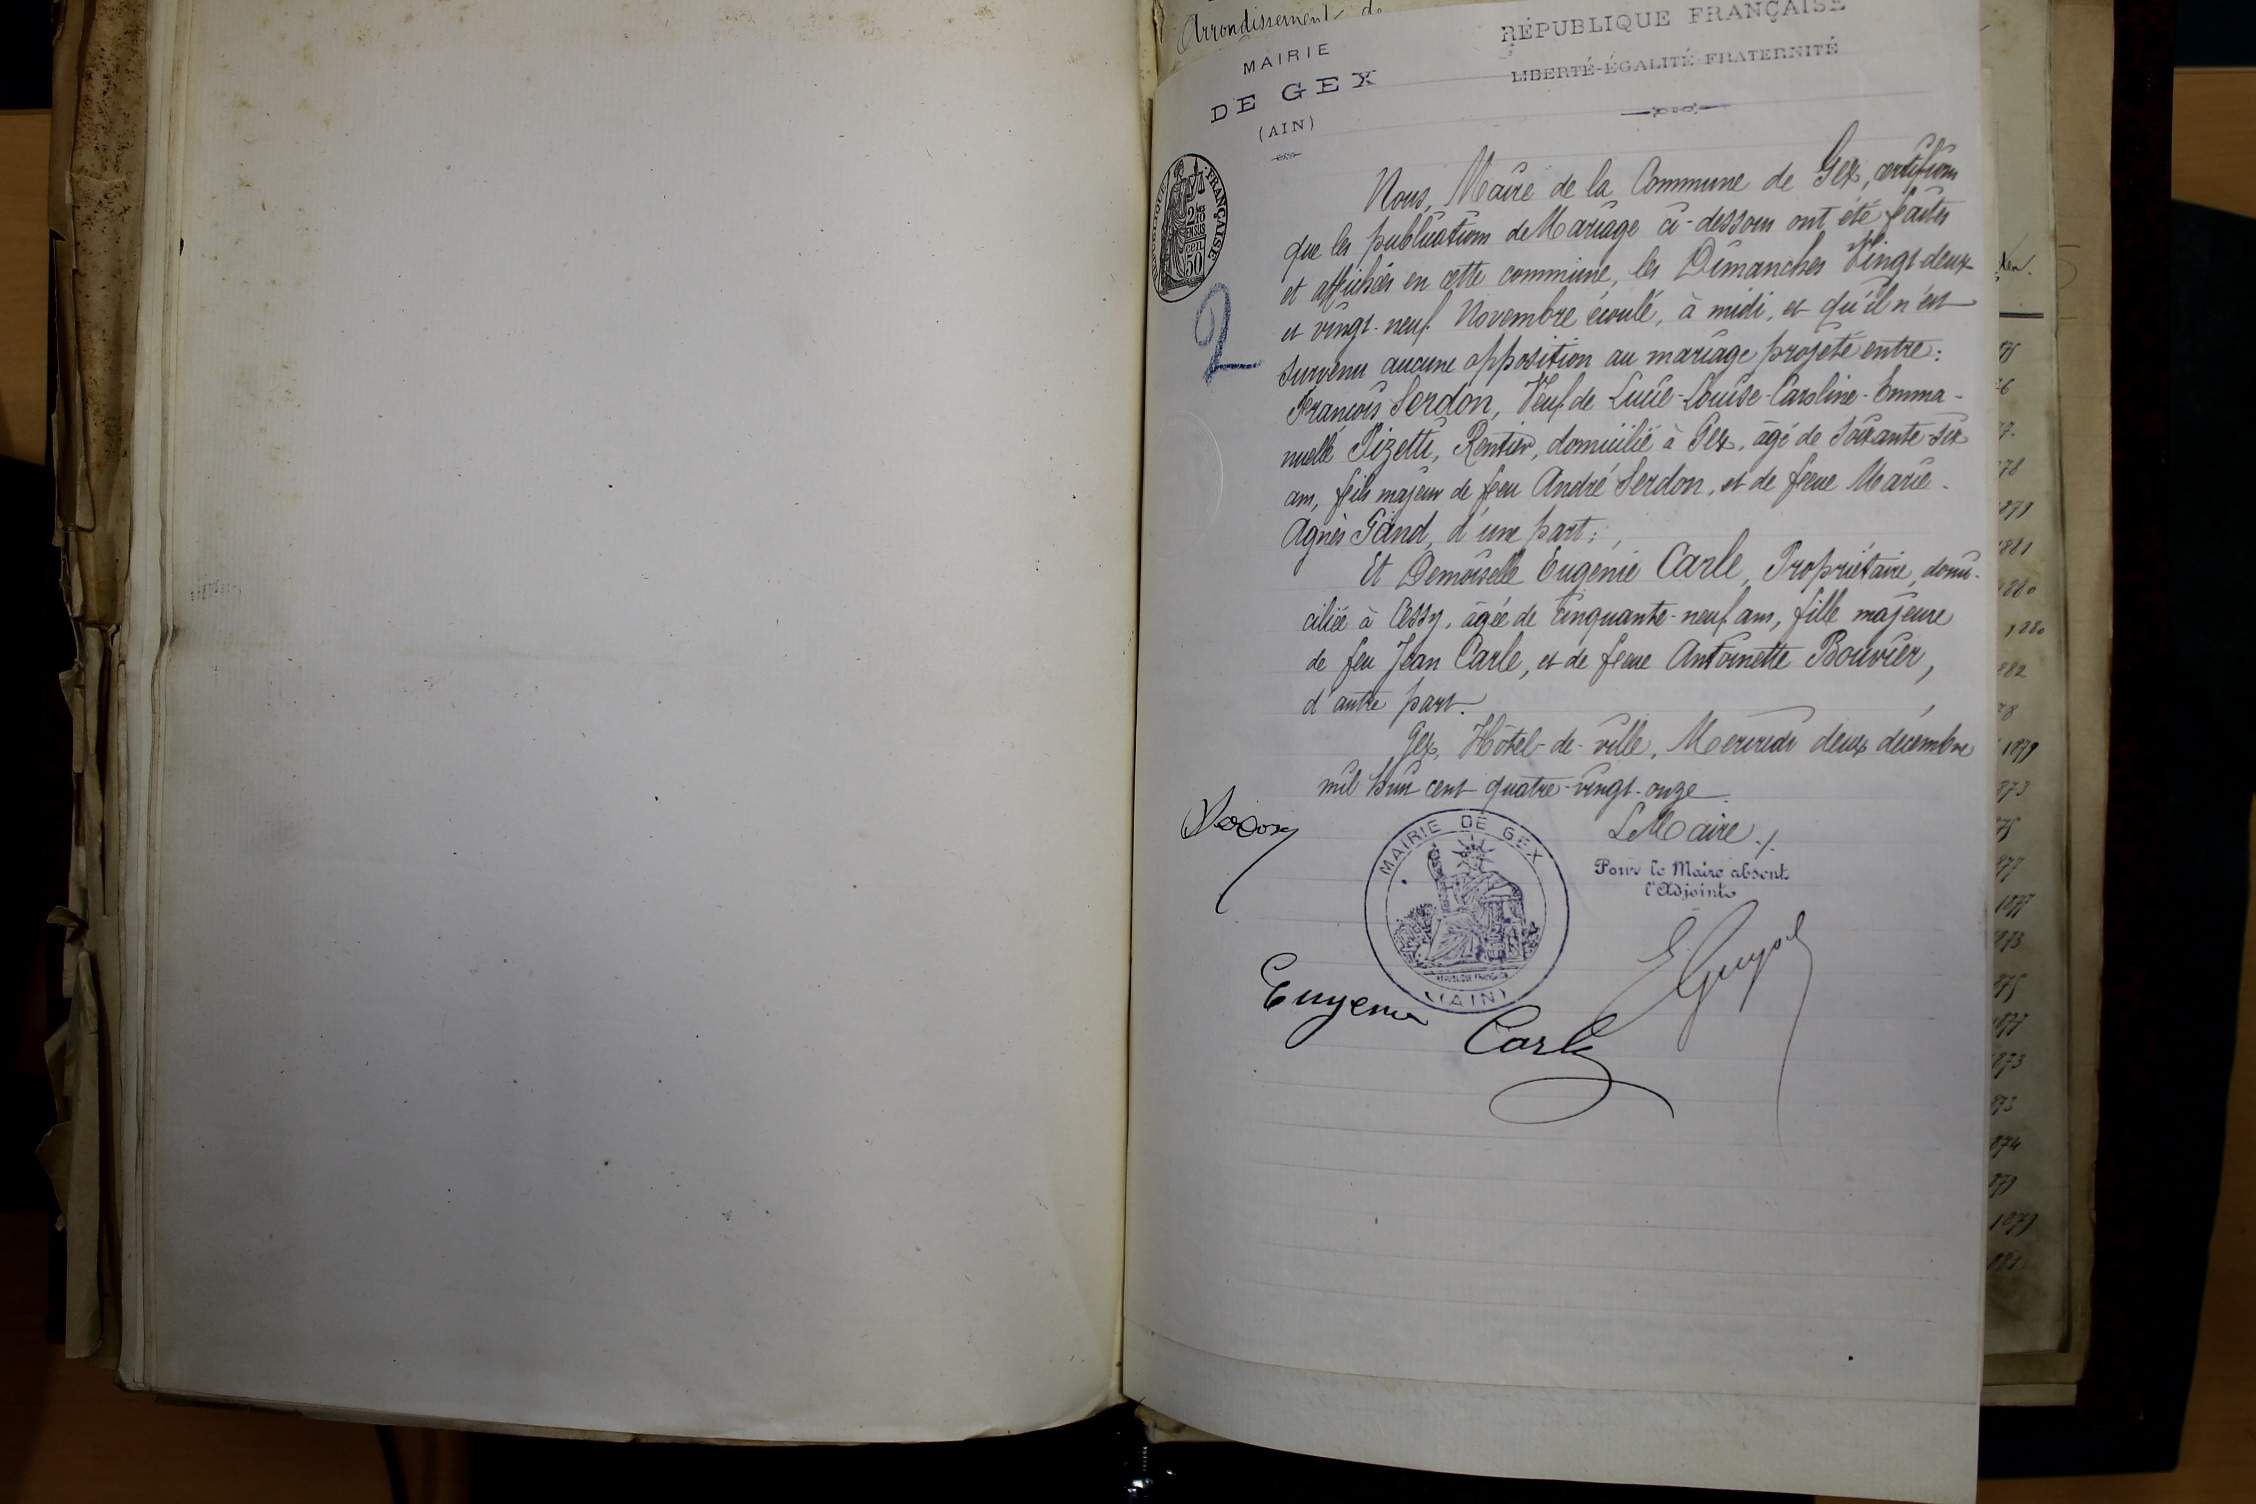 Arrondissement de
MAIRIE
DE GEX
(AIN)
RÉPUBLIQUE FRANÇAISE
LIBERTÉ-ÉGALITÉ-FRATERNITÉ
RÉPUBLIQUE FRANÇAISE
2/10 EN SUS
50 cen
2
Nous, Maire de la Commune de Gex, certifions
que les publications de Mariage ci-dessous ont été faites
et affichées en cette commune, les Dimanches Vingt-deux
et vingt-neuf Novembre écoulé, à midi, et qu'il n'est
survenu aucune opposition au mariage projeté entre:
François Serdon, Veuf de Lucie-Louise-Caroline-Emma-
nuelle Pizetti, Rentier, domicilié à Gex, âgé de Soixante-six
ans, fils majeur de feu André Serdon, et de feue Marie-
Agnès Gand, d'une part;
Et Demoiselle Eugénie Carle, Propriétaire, domi-
ciliée à Cessy, âgée de Cinquante-neuf ans, fille majeure
de feu Jean Carle, et de feue Antoinette Bouvier,
d'autre part.
Gex, Hôtel-de-ville, Mercredi deux décembre
mil huit cent quatre-vingt-onze.
Le Maire
Pour le Maire absent
l'Adjoint
Serdon
MAIRIE DE GEX
RÉPUBLIQUE FRANÇAISE
(AIN)
Eugenie Carle